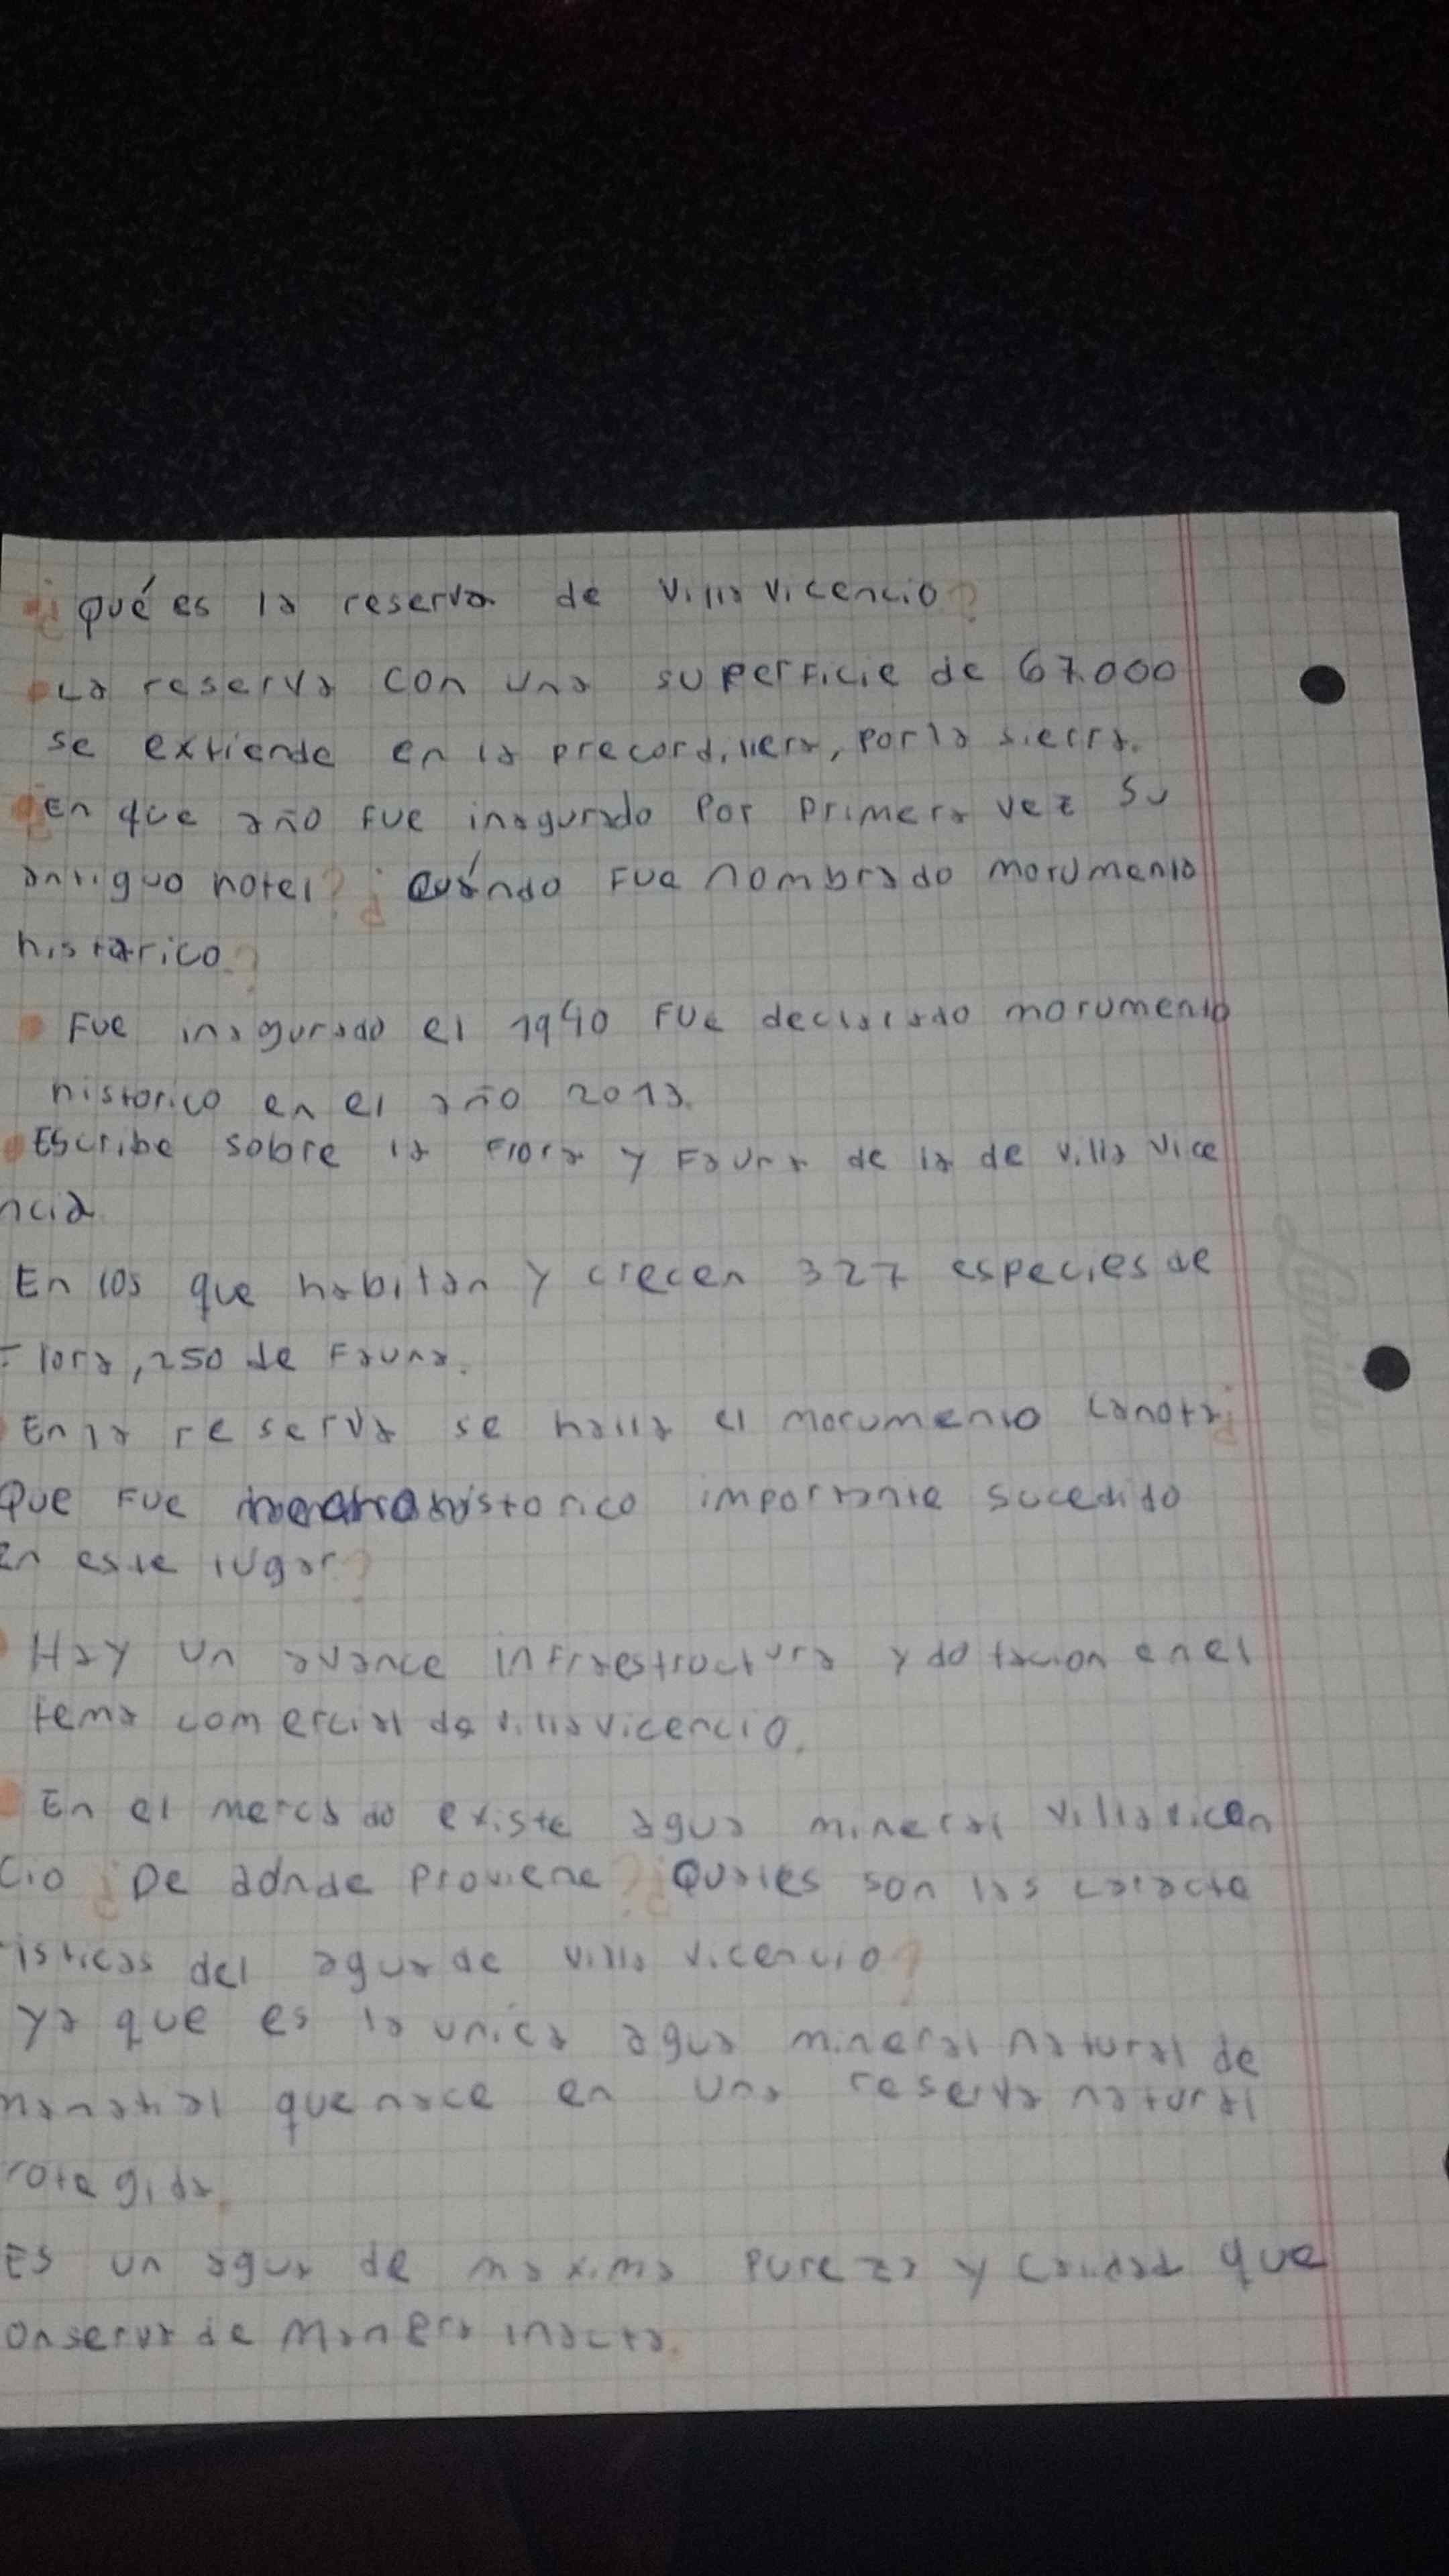 ¿Qué es la reserva de Villa Vicencio?
La reserva con una superficie de 67.000
se extiende en la precordillera, por la sierra.
¿En que año fue inagurado por primera vez su
antiguo hotel? ¿Cuándo fue nombrado monumento
historico?
Fue inagurado el 1940 fue declarado monumento
historico en el año 2013.
Escribe sobre la flora y fauna de la de villa vice
ncia
En los que habitan y crecen 327 especies de
Flora, 250 de Fauna.
En la reserva se halla el monumento Canota ¿
Que fue historico importante sucedido
en este lugar?
Hay un avance infraestructura y dotacion en el
tema comercial de villa vicencio.
En el mercado existe agua mineral villavicen
cio ¿De adnde proviene? ¿Quales son las caracte
risticas del agua de villa vicencio?
ya que es la unica agua mineral natural de
manatial que nace en una reserva natural
rotegida.
Es un agua de maxima pureza y calidad que
onserva de manera inacta.
Lignado